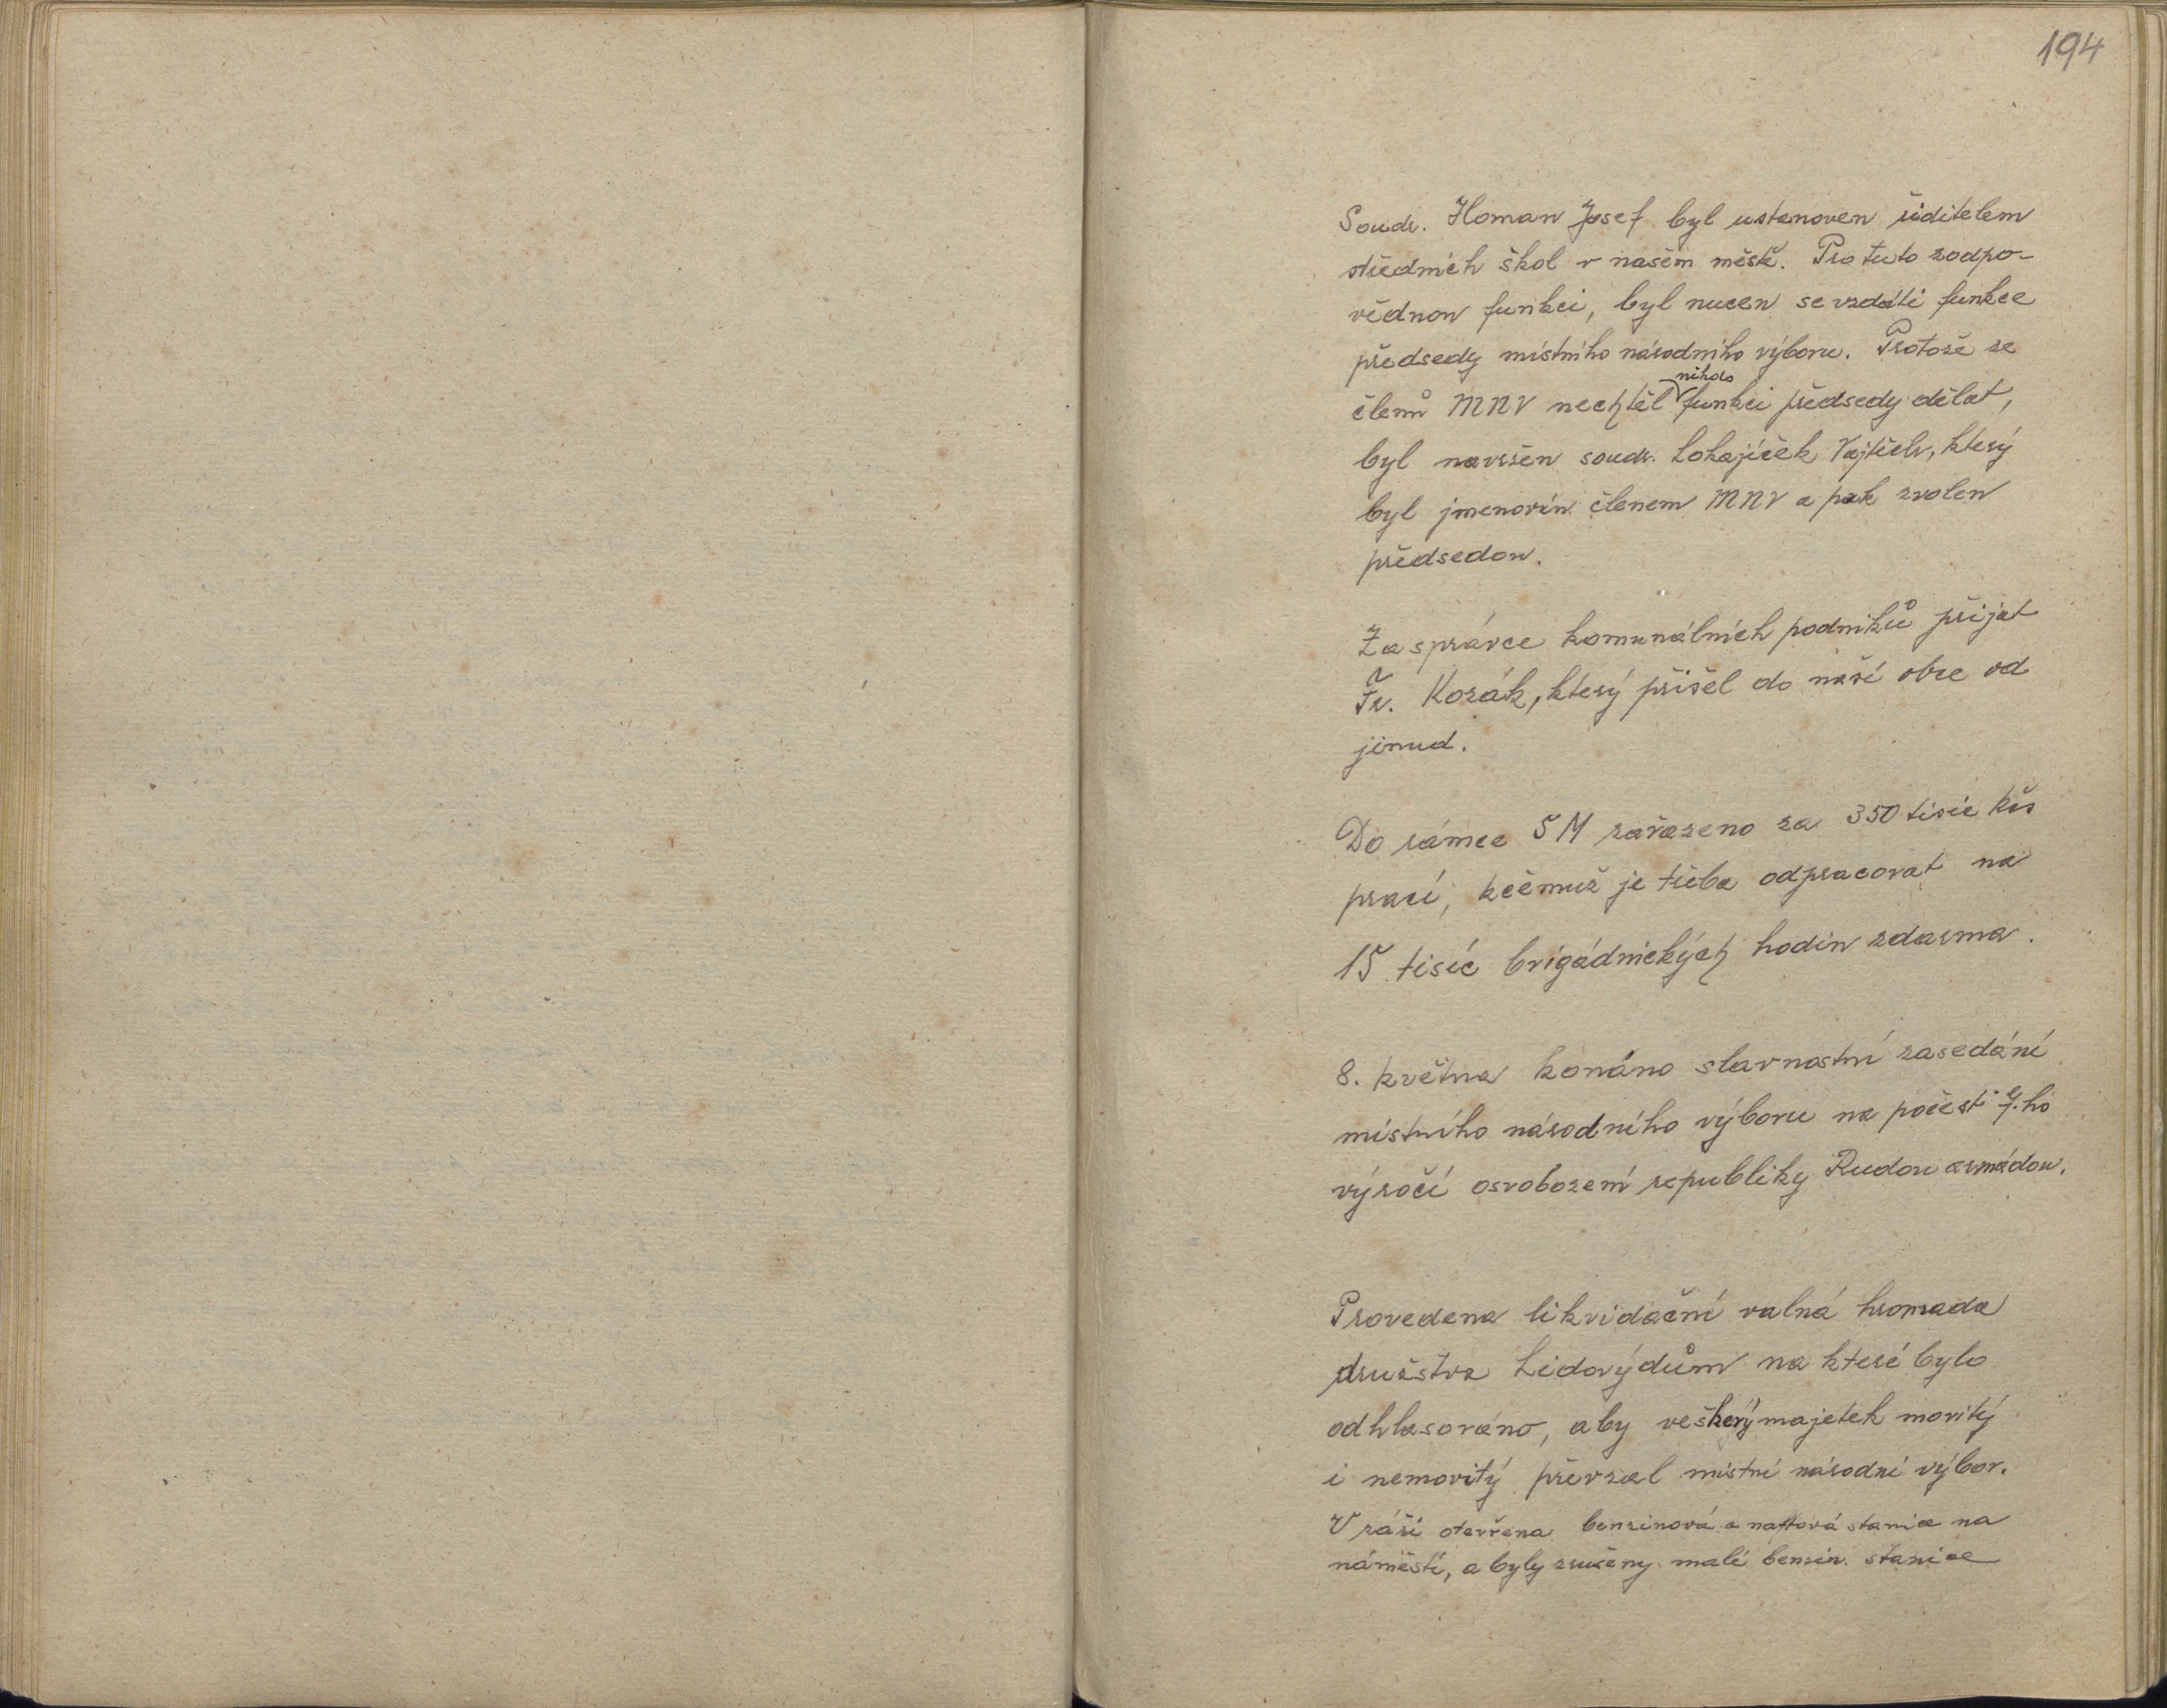 194
Soudr. Homan Josef byl ustanoven řiditelem
středních škol v našem městě. Pro tuto zodpo-
vědnou funkci, byl nucen se vzdáti funkce
předsedy místního národního výboru. Protože ze
členů MNV nechtěl nikdo funkci předsedy dělat,
byl navržen soudr. Lokajíček Vojtěch, který
byl jmenován členem MNV a pak zvolen
předsedou.
Za správce komunálních podniků přijat
Fr. Kozák, který přišel do naší obce od
jinud.
Do rámce 5M zařazeno za 350 tisíc Kčs
prací, kčemuž je třeba odpracovat na
15 tisíc brigádnických hodin zdarma.
8. května konáno slavnostní zasedání
místního národního výboru na počest 7.ho
výročí osvobození republiky Rudou armádou.
Provedena likvidační valná hromada
družstva Lidovýdům na které bylo
odhlasováno, aby veškerý majetek movitý
i nemovitý převzal místní národní výbor.
V září otevřena benzinová a naftová stanice na
náměstí, a byly zrušeny malé benzin. stanice